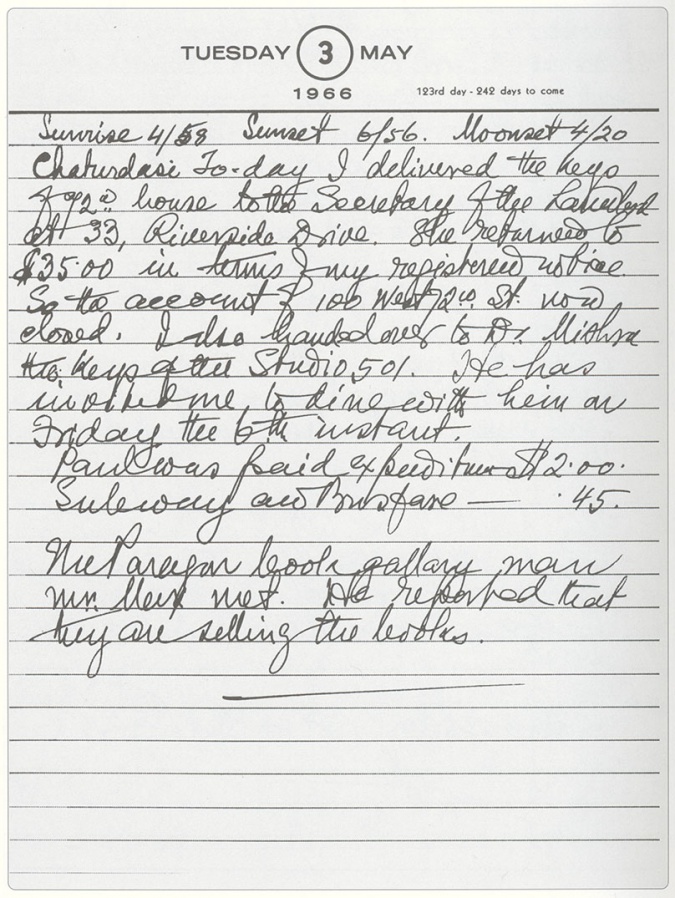 TUESDAY 3 MAY
1966 123rd day - 242 days to come
Sunrise 4/58 Sunset 6/56. Moonset 4/20
Chaturdasi To-day I delivered the keys
of 72nd house to the Secretary of the Landlord
at 33, Riverside Drive. She returned to
$35.00 in terms of my registered notice
So the account of 100 West 72nd St. now
closed. I also handed over to Dr. Mishra
the keys of the Studio 501. He has
invited me to dine with him on
Friday the 6th instant.
Paul was paid expenditure $2.00.
Subway and Busfare — .45.
The Paragon book gallary man
mr. met. He reported that
they are selling the books.